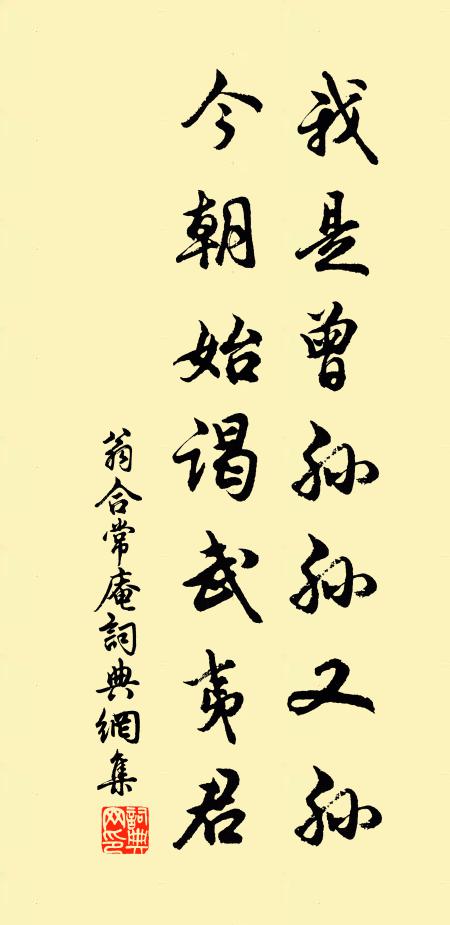 我是曾孙孙又孙
今朝始谒武夷君
翁合常庵詞典網集
詞典网印